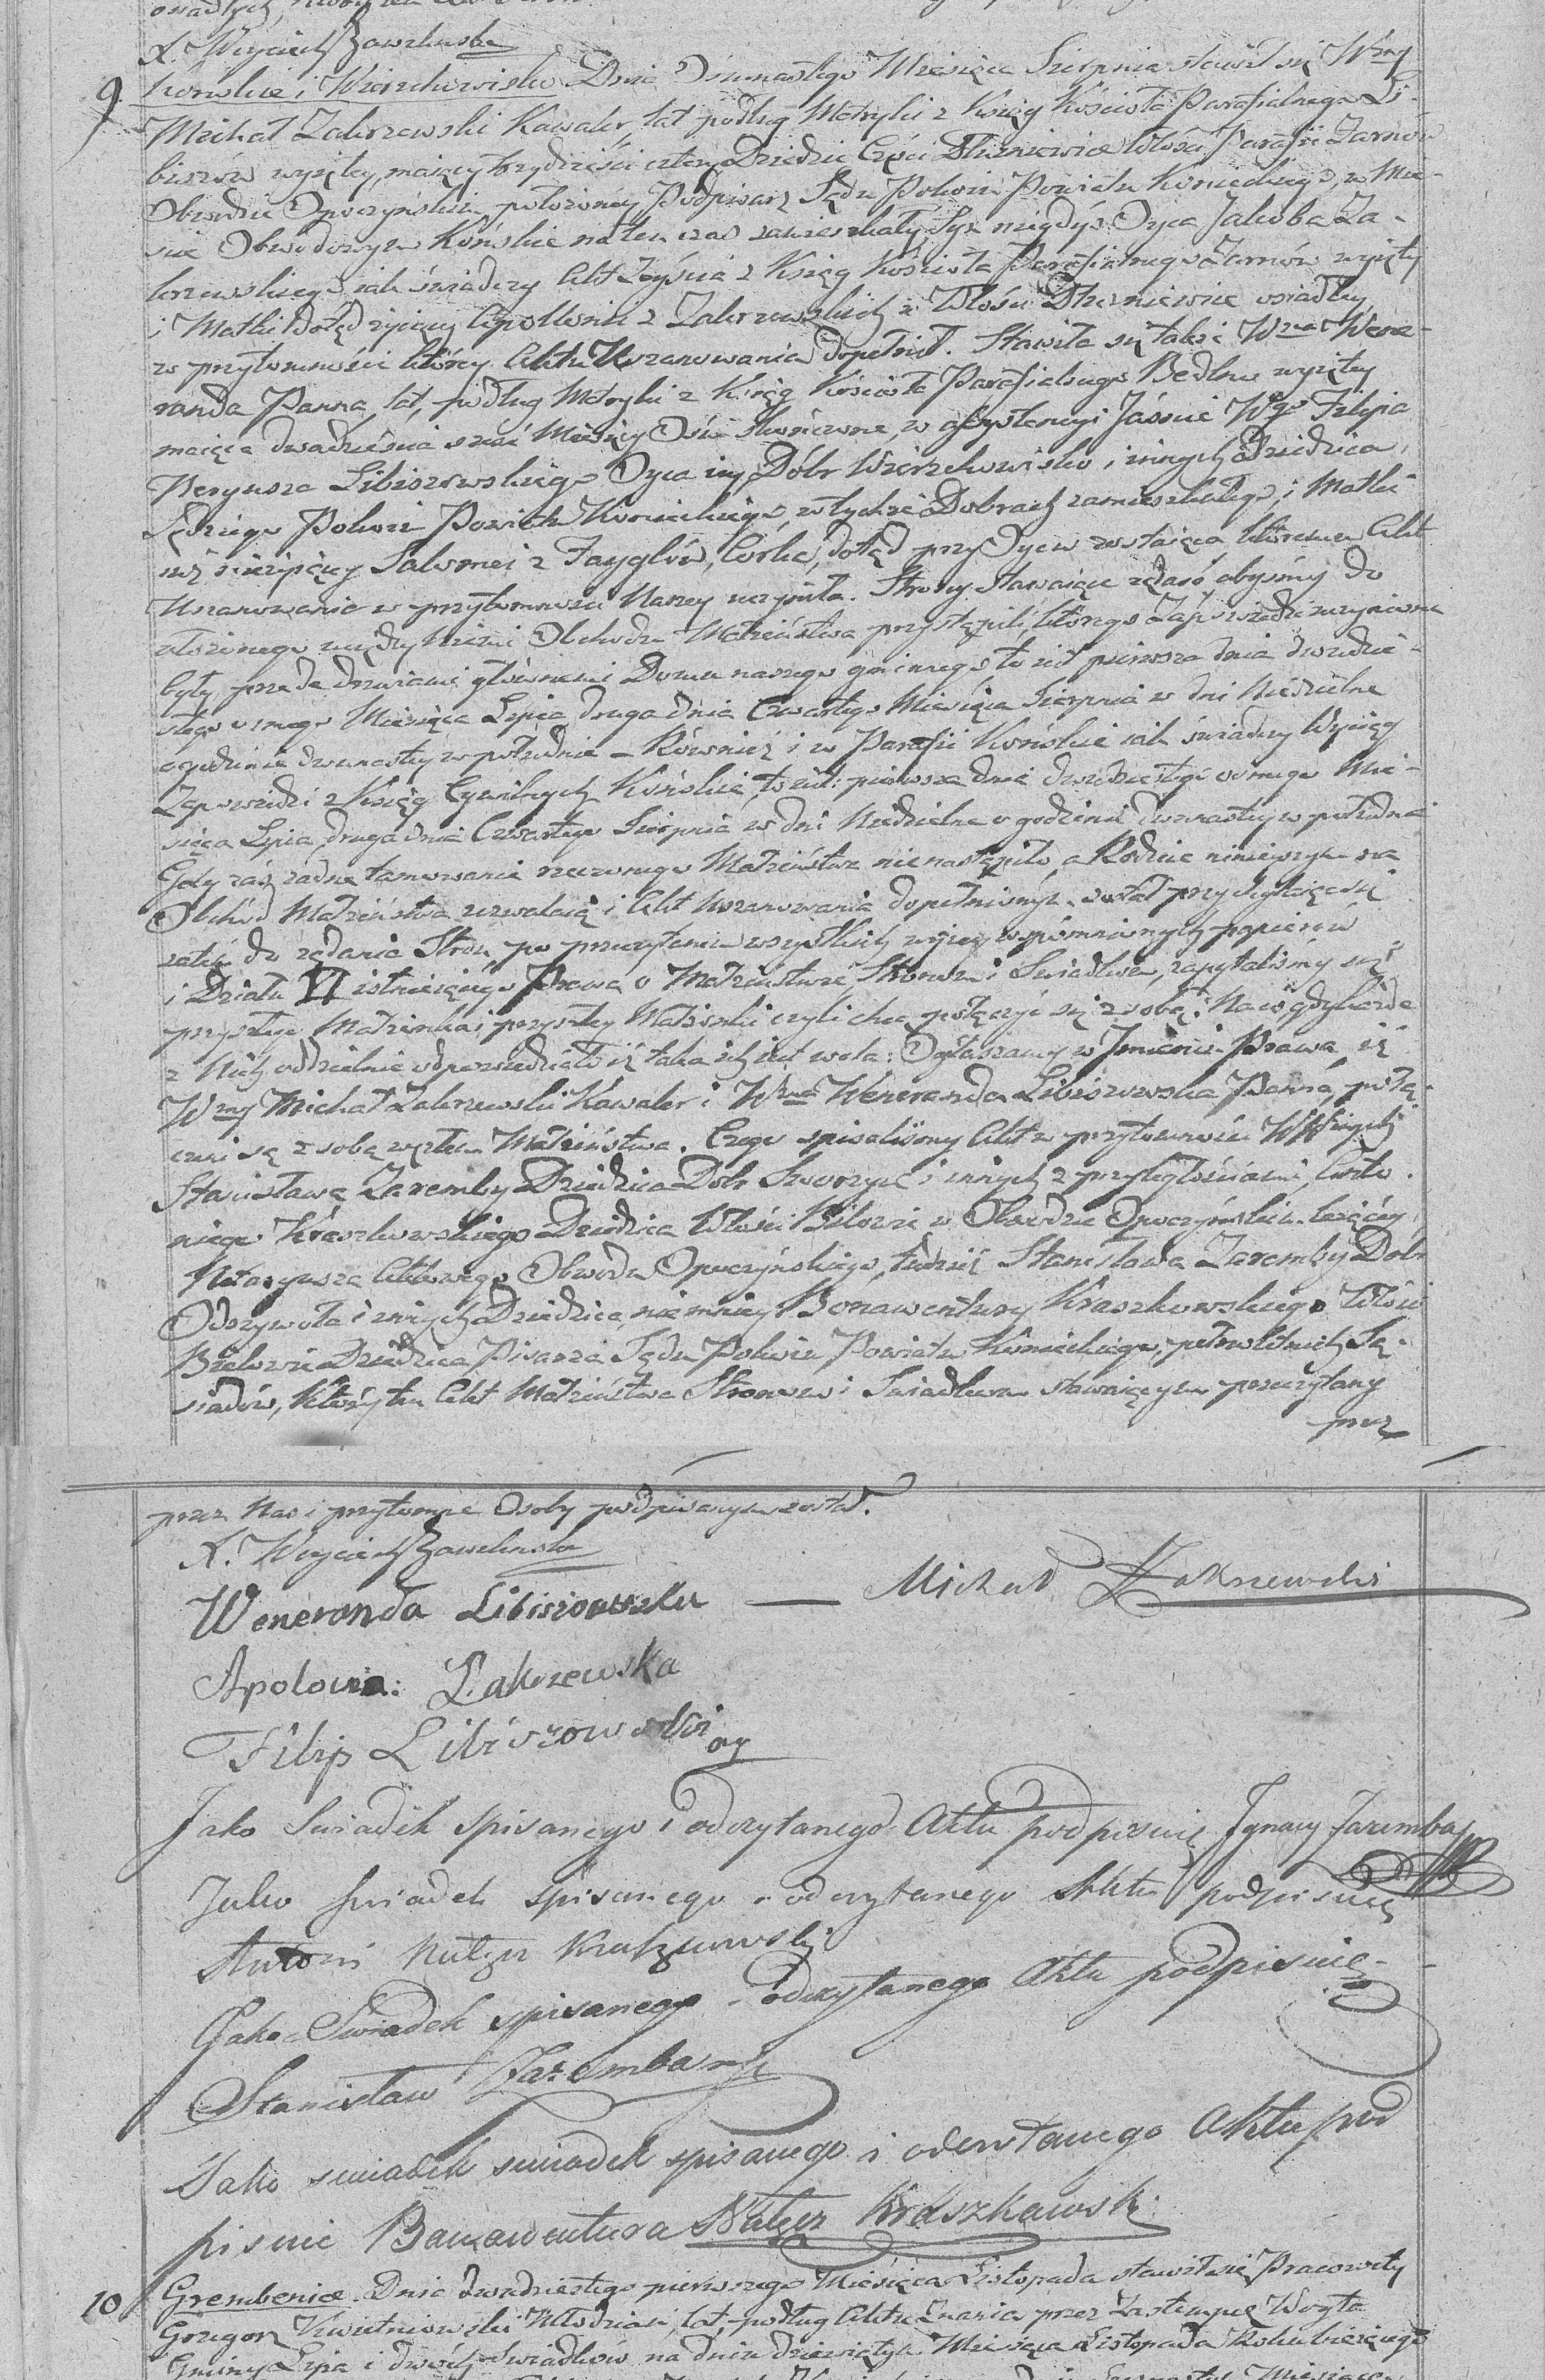 X. Woyciech Zawelinski
9. Końskie i Wierzchowisko Dnia Osmnastego Miesiąca Sierpnia stawił się Wzny
Michał Zakrzewski Kawaler, lat podług Metryki z Ksiąg Kościoła Parafialnego Li-
biszów wyjętey, maiący trzydzieści cztery Dziedzic Części Dłużniewice Włości Parafii Żarnów
Obwodzie Opoczyńskim położoney Podpisarz Sądu Pokoiu Powiatu Konieckiego, w Mie-
ście Obwodowym Końskie na ten czas zamieszkały, Syn niegdyś Oyca Jakoba Za-
krzewskiego iak świadczy Akt Zeyścia z Ksiąg Kościoła Parafialnego Żarnów wyjęty
i Matki dotąd żyiącey Apollonii z Zakrzewskich w Włości Dłużniewice osiadłey
w przytomności którey Aktu Uszanowania dopełnił. Stawiła się także Wzna Wene-
randa Panna, lat, podług Metryki z Ksiąg Kościoła Parafialnego Bedlno wyjętey
maiąca dwadzieścia sześć Miesięcy Ośm skończone, w assystencyi Jaśnie Wgo Filipa
Neryusza Libiszowskiego Oyca iey, Dóbr Wierzchowisko i innych Dziedzica,
Sędziego Pokoiu Powiatu Konieckiego, w tychże Dobrach zamieszkałego, i Matki
iuż nieżyiącey Salomei z Fayglów, Córka, dotąd przy Oycu zostaiąca któremu Akt
Uszanowania w przytomności Naszey uczyniła. Strony stawaiące żądaią abyśmy do
ułożonego między Niemi Obchodu Małżeństwa przystąpili, którego Zapowiedzi uczynione
były przede drzwiami głównemi Domu naszego gminnego, to iest pierwsza dnia dwudzie-
stego osmego Miesiąca Lipca, druga dnia Czwartego Miesiąca Sierpnia w dni Niedzielne
o godzinie dwunastey w południe – Również i w Parafii Końskie iak świadczy Wyciąg
Zapowiedzi z Ksiąg Cywilnych Końskie, to iest: pierwsza dnia dwudziestego osmego Mie-
siąca Lipca, druga dnia Czwartego Sierpnia w dni Niedzielne o godzinie dwunastey w południe
Gdy zaś żadne tamowanie rzeczonego Małżeństwa nie nastąpiło, a Rodzice ninieyszym na
Obchód Małżeństwa zezwalaią i Akt Uszanowania dopełnionym został przychylaiąc się
zatém do żądania Stron, po przeczytaniu wszystkich wyżey wspomnionych papierów
i Działu VI istnieiącego Prawa o Małżeństwie Stronom i Świadkom, zapytaliśmy się
przyszłego Małżonka i przyszłey Małżonki czyli chcą połączyć się z sobą? Na co gdy każde
z Nich oddzielnie odpowiedziało iż taka ich iest wola: Ogłaszamy w Jmieniu Prawa, iż
Wzny Michał Zakrzewski Kawaler i Wzna Weneranda Libiszowska Panna, połą-
czeni są z sobą węzłem Małżeństwa. Czego spisaliśmy Akt w przytomności
Stanisława Zaremby Dziedzica Dóbr Skworzyc i innych z przyległościami,
Kraszkowskiego Dziedzica Włości Bilowie w Obwodzie Opoczyńskim leżącey
Notaryusza Aktowego Obwodu Opoczyńskiego, tudzież Stanisława Zaremby Dóbr
Odrzywoła i innych Dziedzica, niemniey Bonawentury Kraszkowskiego Włości
Bielowie Dziedzica Pisarza Sądu Pokoiu Powiatu Konieckiego, pełnoletnich Są-
siadów, Któryto Akt Małżeństwa Stronom i Świadkom stawaiącym przeczytany
przez
przez Nas i przytomne Osoby podpisanym został.
X. Woyciech Zawelinski
Weneranda Libiszowska — Michał Zakrzewski
Apolonia: Zakrzewska
Filip Libiszowski oy
Jako Swiadek spisanego i odczytanego Aktu podpisuię Jgnacy Zaremba
Jako swiadek spisanego i odczytanego Aktu podpisuię
Antoni Nałęcz Kraszkowski
Jako Swiadek spisanego i odczytanego Aktu podpisuię
Stanisław Zaremba
Jako swiadek swiadek spisanego i odczytanego Aktu pod
pisuię Bonawentura Nałęcz Kraszkowski
10 Grembenice. Dnia dwudziestego pierwszego Miesiąca Listopada stawił się Pracowity
Grzegorz Kwietniewski Młodzian, lat, podług Aktu Znania przez Zastempcę Woyta
Gminy Lipa i dwóch Swiadków na dniu dziewiątym Miesiąca Listopada Roku bieżącego